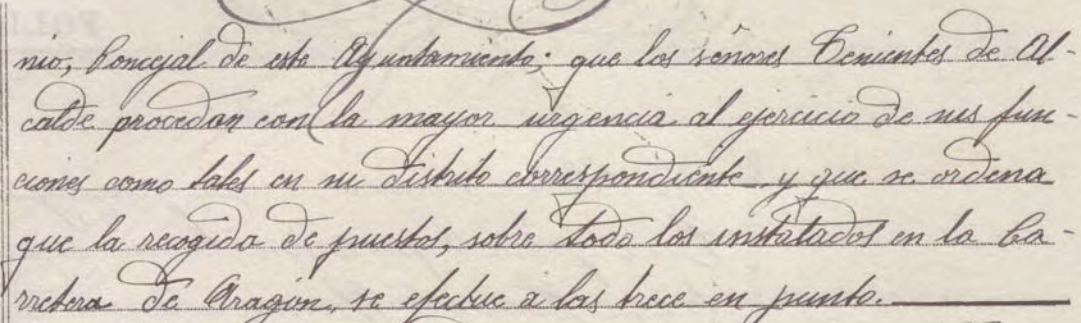 nio, Concejal de este Ayuntamiento; que los señores Tenientes de Al-
calde procedan con la mayor urgencia al ejercicio de sus fun-
ciones como tales en su distrito correspondiente y que se ordena
que la recogida de puestos, sobre todo los instalados en la Ca-
rretera de Aragón, se efectue a las trece en punto.